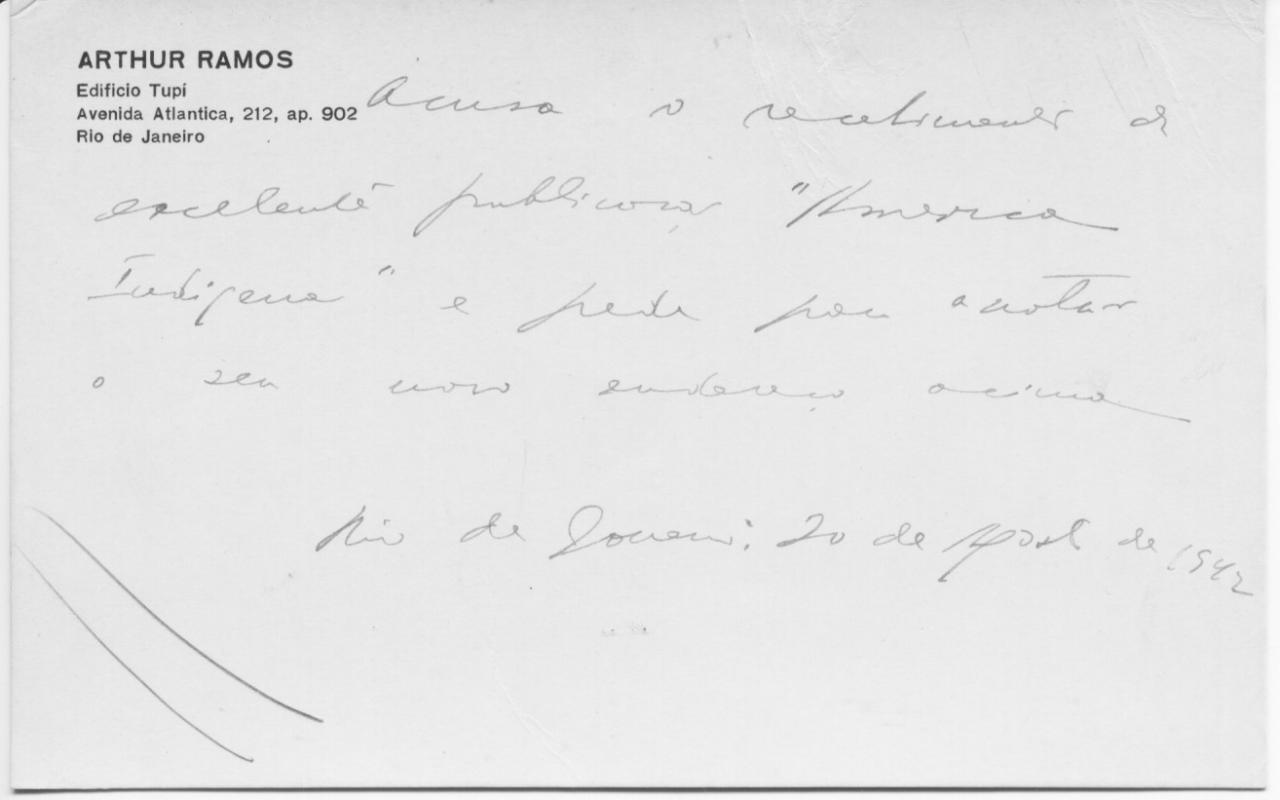 ARTHUR RAMOS
Edificio Tupí
Avenida Atlantica, 212, ap. 902
Rio de Janeiro
Acusa o recebimento da
excelente publicação "America
Indigena" e pede para anotar
o seu novo endereço acima
Rio de Janeiro, 20 de Agosto de 1942